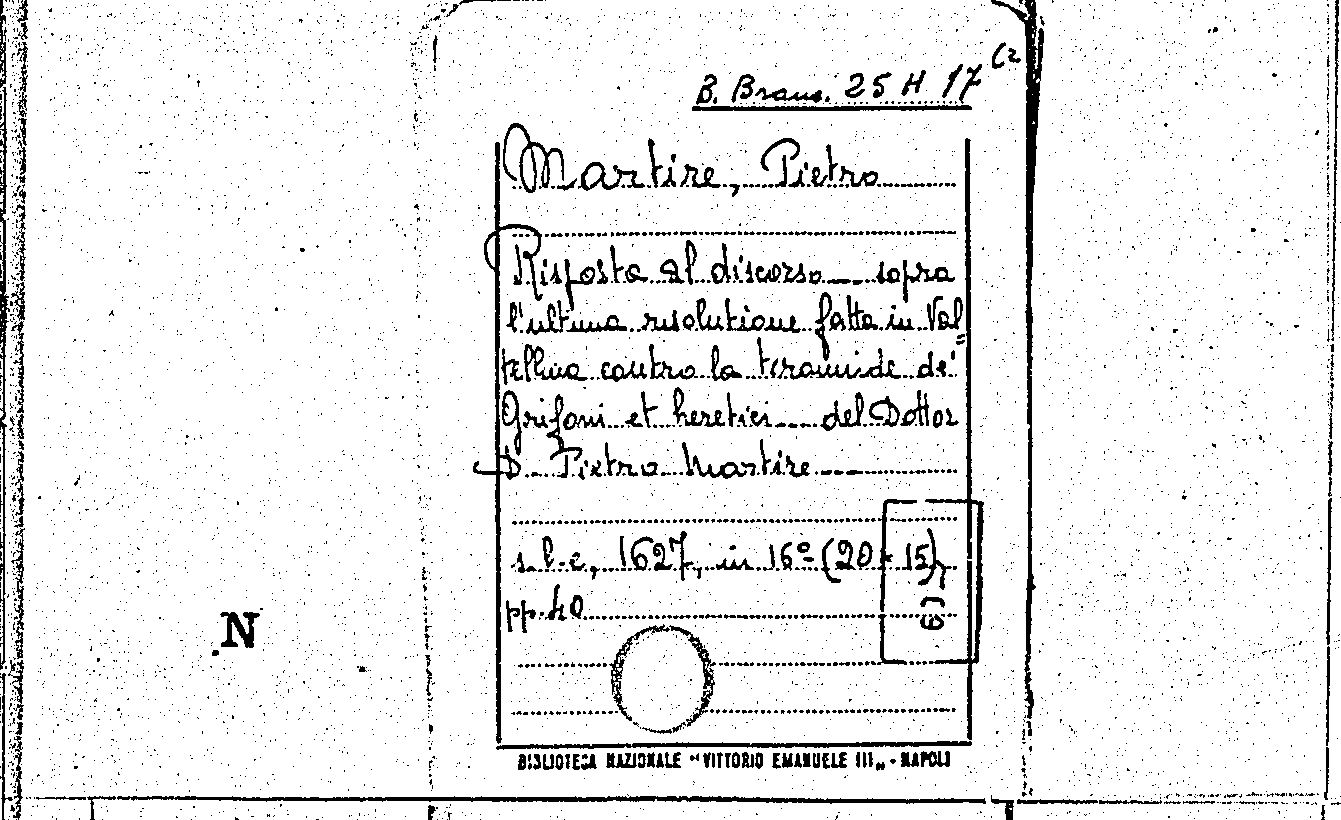 B. Branc. 25 H 17 (2
Martire, Pietro
Risposta al discorso ... sopra
l'ultima risolutione fatta in Val=
tellina contro la tirannide de'
Grifoni et heretici ... del Dottor
D. Pietro Martire ...
s.l.e, 1627, in 16° (20 × 15),
pp. 40
6)
N
BIBLIOTECA NAZIONALE "VITTORIO EMANUELE III„ - NAPOLI